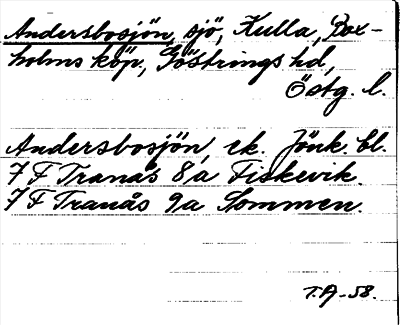 Andersbosjön, sjö, Kulla, Box-
holms köp, Göstrings hd,
Östg. l.
Andersbosjön, ek. Jönk. bl.
7 F Tranås 8a Fiskevik
7 F Tranås 9a Sommen.
T.A-58.